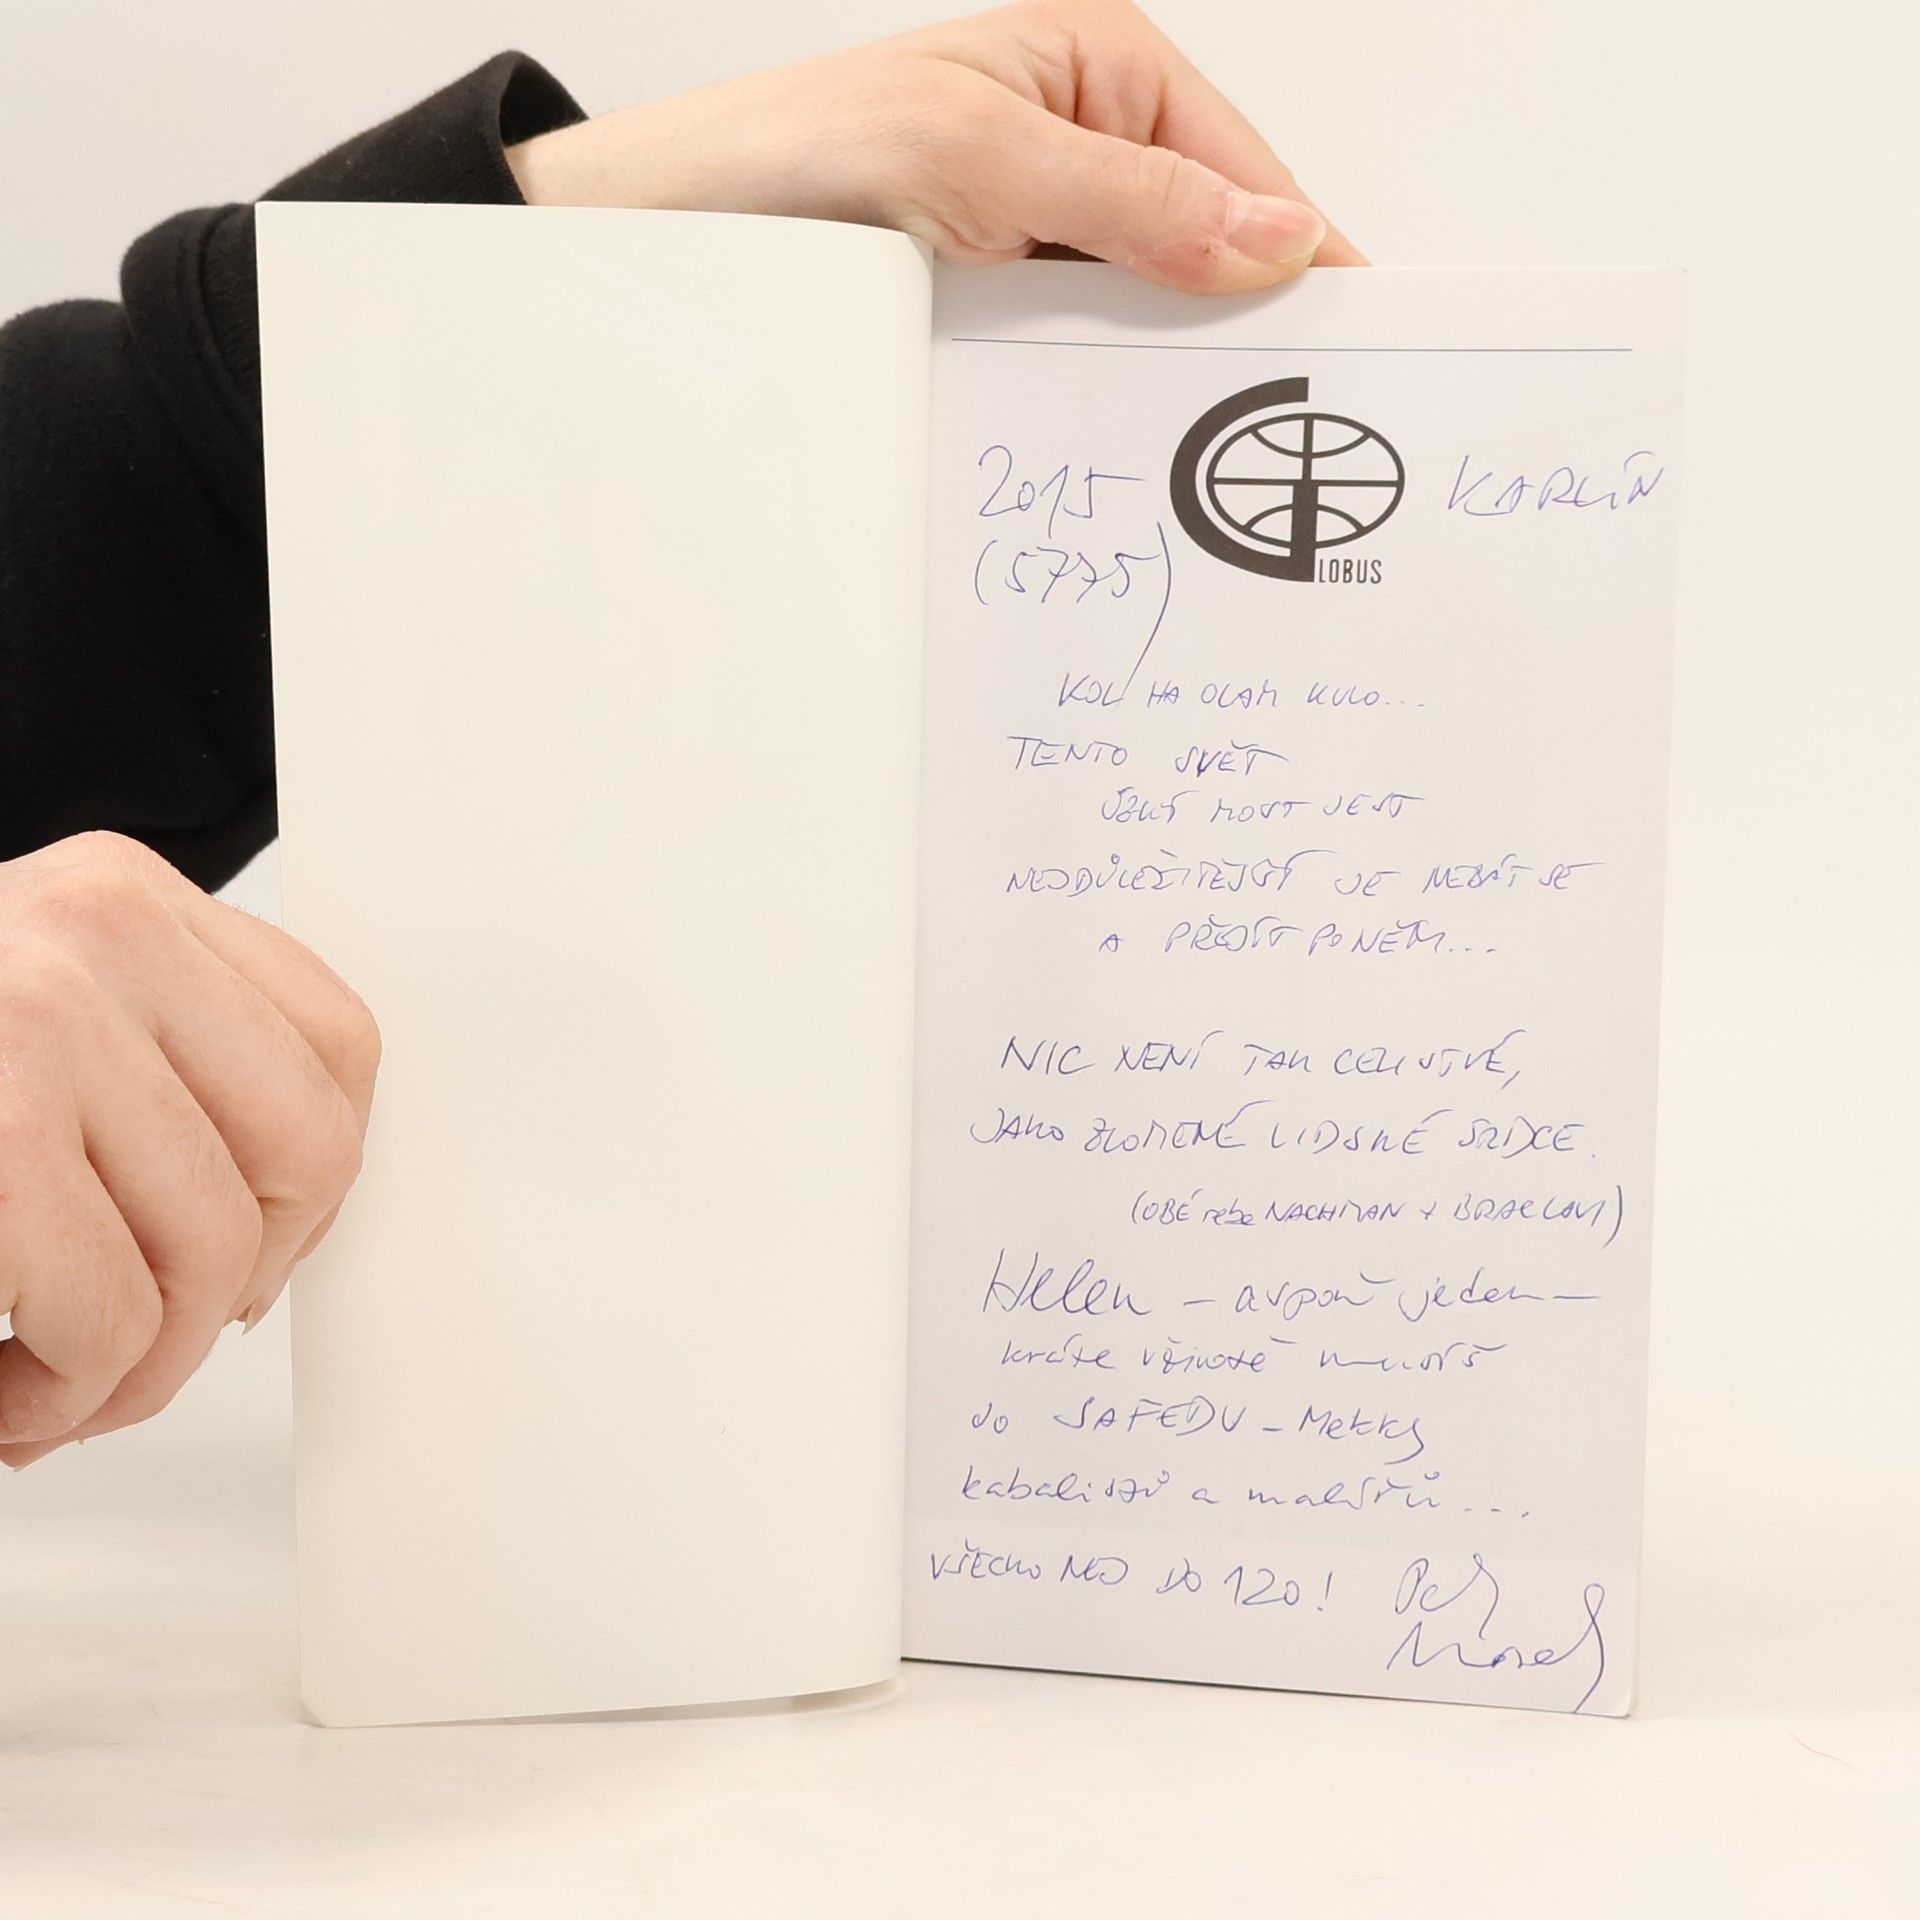 2015 KARLÍN
(5775)
GLOBUS
KOL HA OLAM KULO...
TENTO SVĚT
ÚZKÝ MOST JEST
NEJDŮLEŽITĚJŠÍ JE NEBÁT SE
A PŘEJÍT PO NĚM...
NIC NENÍ TAK CELISTVÉ,
JAKO ZLOMENÉ LIDSKÉ SRDCE.
(OBÉ rebe NACHMAN z BRACLAVI)
Helen – aspoň jeden–
kráte v životě musíš
do SAFEDU – Mekky
kabalistů a malířů...
VŠECHO NEJ DO 120! Petr